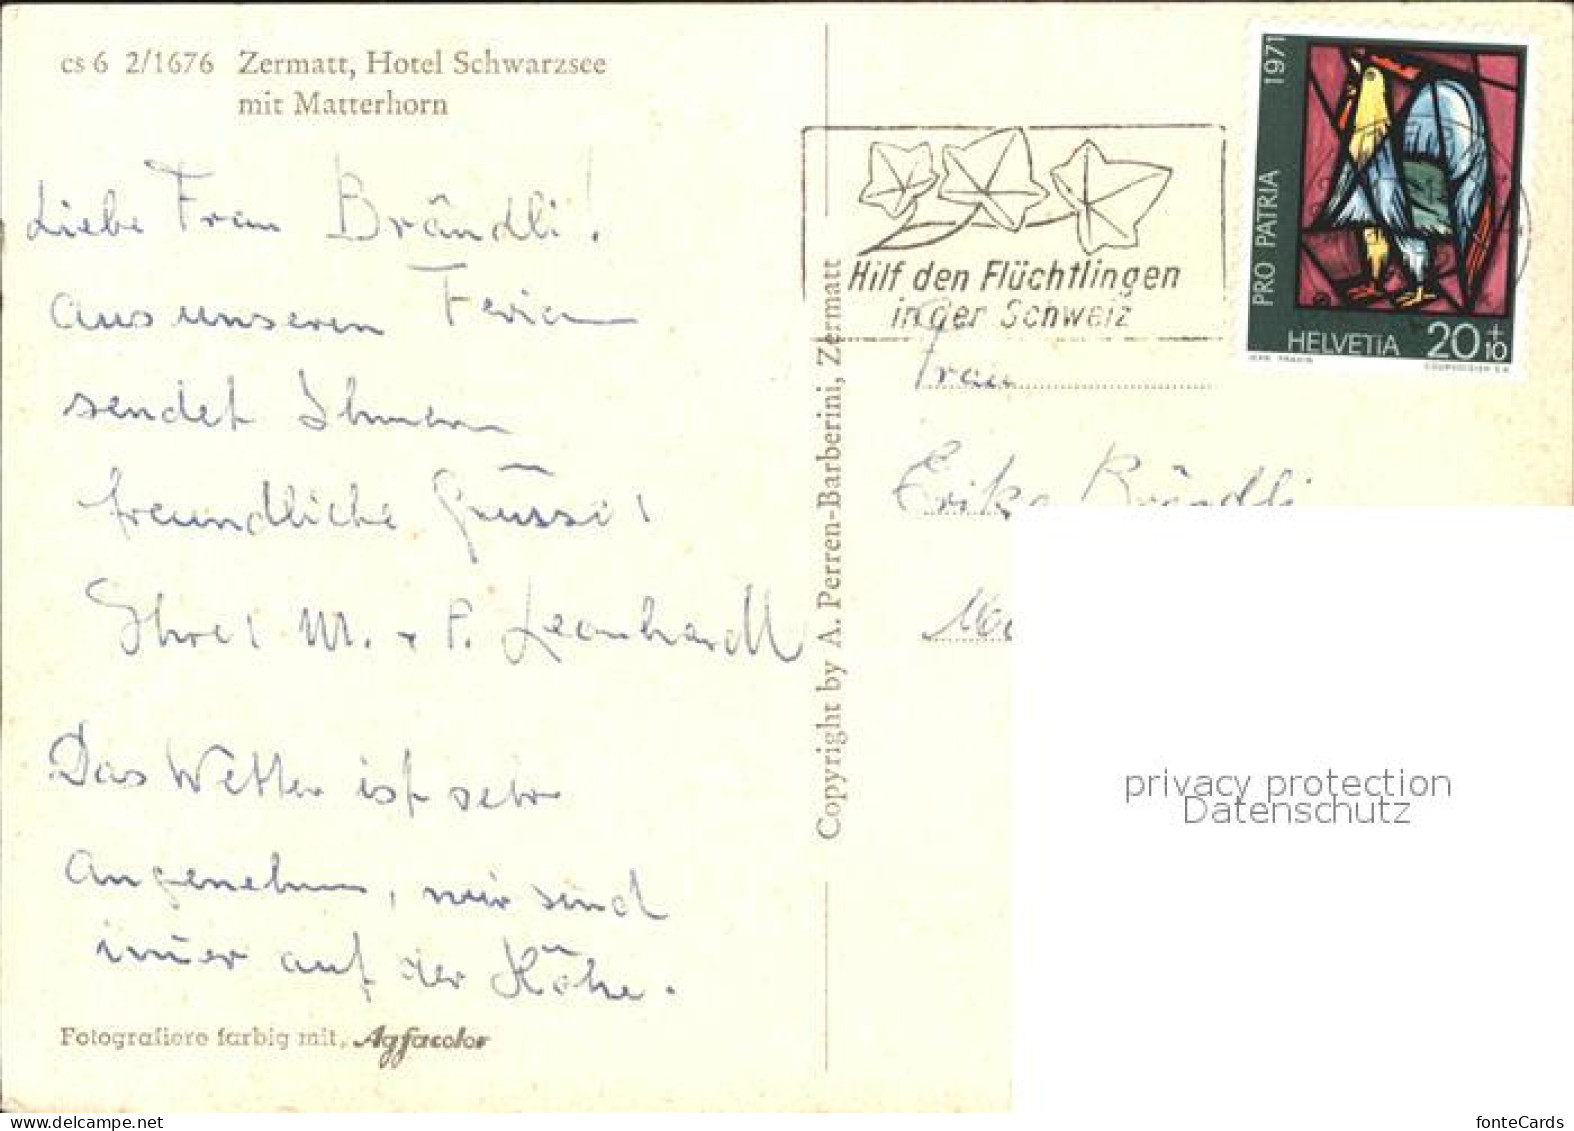 cs 6 2/1676 Zermatt, Hotel Schwarzsee
mit Matterhorn
Liebe Frau Brändli!
Aus unseren Ferien
sendet Ihnen
freundliche Grüsse!
Ihre! M. + P. Leonhardt
Das Wetter ist sehr
angenehm, wir sind
immer auf der Höhe.
Fotografiere farbig mit Agfacolor
Copyright by A. Perren-Barberini, Zermatt
Hilf den Flüchtlingen
in der Schweiz
PRO PATRIA 1971
HELVETIA 20+10
JEAN PRAHIN
COURVOISIER S.A.
Frau
Erika Brändli
privacy protection
Datenschutz
fonteCards